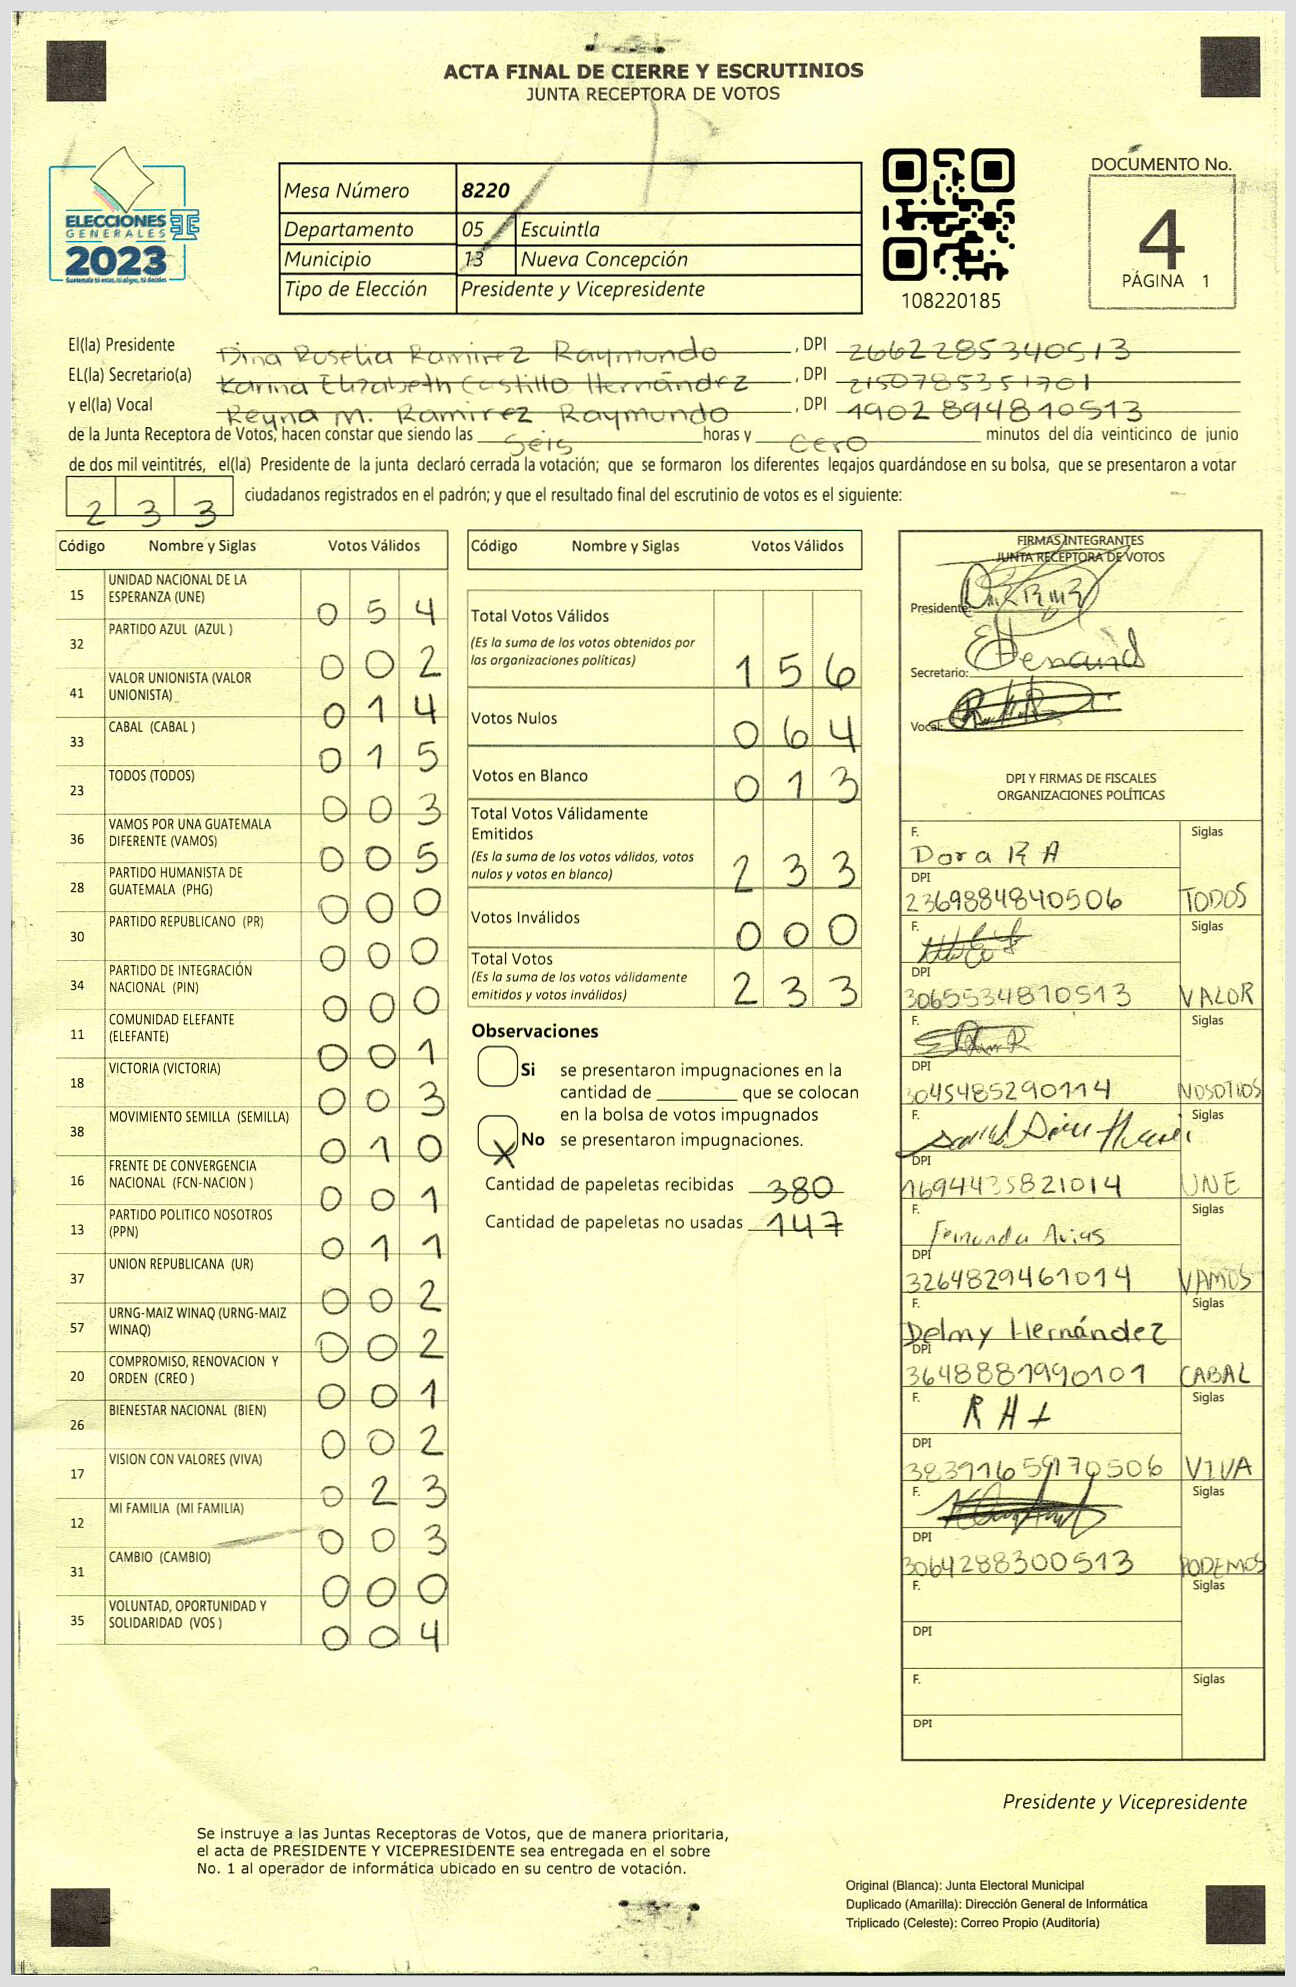 ACTA FINAL DE CIERRE Y ESCRUTINIOS
JUNTA RECEPTORA DE VOTOS
ELECCIONES
GENERALES
2023
Mesa Número 8220
Departamento 05 Escuintla
Municipio 13 Nueva Concepción
Tipo de Elección Presidente y Vicepresidente
108220185
DOCUMENTO No.
4
PÁGINA 1
El(la) Presidente Dina Roselia Ramirez Raymundo , DPI 2662285340513
EL(la) Secretario(a) Karina Elizabeth Castillo Hernández , DPI 2150785351701
y el(la) Vocal Reyna M. Ramirez Raymundo , DPI 1902894810513
de la Junta Receptora de Votos, hacen constar que siendo las Seis horas y cero minutos del día veinticinco de junio
de dos mil veintitrés, el(la) Presidente de la junta declaró cerrada la votación; que se formaron los diferentes legajos guardándose en su bolsa, que se presentaron a votar
233 ciudadanos registrados en el padrón; y que el resultado final del escrutinio de votos es el siguiente:
Código Nombre y Siglas Votos Válidos
15 UNIDAD NACIONAL DE LA ESPERANZA (UNE) 054
32 PARTIDO AZUL (AZUL ) 002
41 VALOR UNIONISTA (VALOR UNIONISTA) 014
33 CABAL (CABAL ) 015
23 TODOS (TODOS) 003
36 VAMOS POR UNA GUATEMALA DIFERENTE (VAMOS) 005
28 PARTIDO HUMANISTA DE GUATEMALA (PHG) 000
30 PARTIDO REPUBLICANO (PR) 000
34 PARTIDO DE INTEGRACIÓN NACIONAL (PIN) 000
11 COMUNIDAD ELEFANTE (ELEFANTE) 001
18 VICTORIA (VICTORIA) 003
38 MOVIMIENTO SEMILLA (SEMILLA) 010
16 FRENTE DE CONVERGENCIA NACIONAL (FCN-NACION ) 001
13 PARTIDO POLITICO NOSOTROS (PPN) 011
37 UNION REPUBLICANA (UR) 002
57 URNG-MAIZ WINAQ (URNG-MAIZ WINAQ) 002
20 COMPROMISO, RENOVACION Y ORDEN (CREO ) 001
26 BIENESTAR NACIONAL (BIEN) 002
17 VISION CON VALORES (VIVA) 023
12 MI FAMILIA (MI FAMILIA) 003
31 CAMBIO (CAMBIO) 000
35 VOLUNTAD, OPORTUNIDAD Y SOLIDARIDAD (VOS ) 004
Código Nombre y Siglas Votos Válidos
Total Votos Válidos
(Es la suma de los votos obtenidos por
las organizaciones políticas) 156
Votos Nulos 064
Votos en Blanco 013
Total Votos Válidamente
Emitidos
(Es la suma de los votos válidos, votos
nulos y votos en blanco) 233
Votos Inválidos 000
Total Votos
(Es la suma de los votos válidamente
emitidos y votos inválidos) 233
Observaciones
Si se presentaron impugnaciones en la
cantidad de ________ que se colocan
en la bolsa de votos impugnados
X No se presentaron impugnaciones.
Cantidad de papeletas recibidas 380
Cantidad de papeletas no usadas 147
FIRMAS INTEGRANTES
JUNTA RECEPTORA DE VOTOS
Presidente:
Secretario:
Vocal:
DPI Y FIRMAS DE FISCALES
ORGANIZACIONES POLÍTICAS
F. Dora R A Siglas
DPI 2369884840506 TODOS
F. Siglas
DPI 3065534810513 VALOR
F. Siglas
DPI 3045485290114 NOSOTROS
F. Siglas
DPI 1694435821014 UNE
F. Fernanda Arias Siglas
DPI 3264829461014 VAMOS
F. Delmy Hernández Siglas
DPI 3648881990101 CABAL
F. R H Siglas
DPI VIVA
F. Siglas
DPI 3064288300513 PODEMOS
F. Siglas
DPI
F. Siglas
DPI
Presidente y Vicepresidente
Se instruye a las Juntas Receptoras de Votos, que de manera prioritaria,
el acta de PRESIDENTE Y VICEPRESIDENTE sea entregada en el sobre
No. 1 al operador de informática ubicado en su centro de votación.
Original (Blanca): Junta Electoral Municipal
Duplicado (Amarilla): Dirección General de Informática
Triplicado (Celeste): Correo Propio (Auditoría)